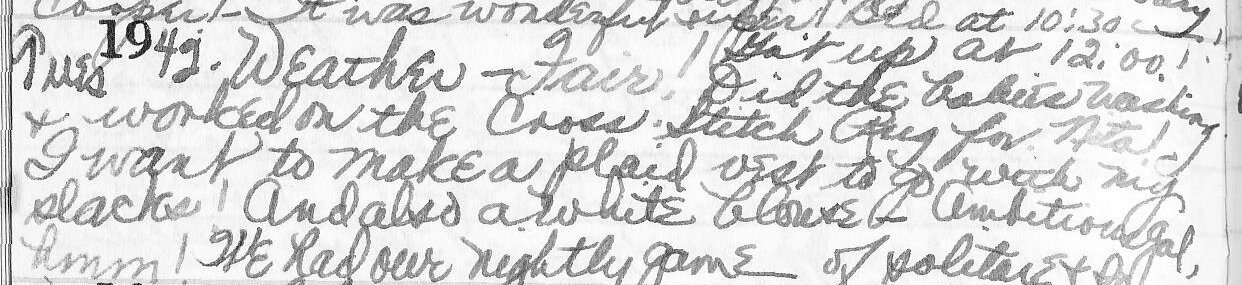 Cooper! - It was wonderful Bed at 10:30
Tues 1949. Weather - Fair! Got up at 12:00!
Did the babies washing
& worked on the Cross Stitch Rug for Nita!
I want to make a plaid vest to go with my
slacks! And also a white blouse - Ambitious gal,
hmm! We had our nightly game of solitare &